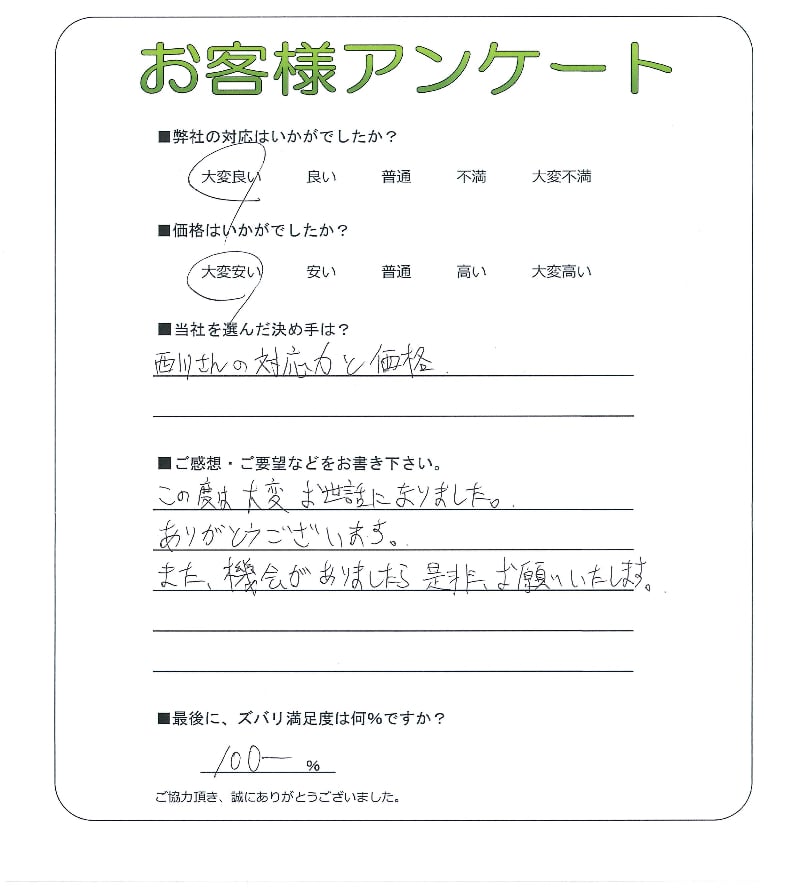 お客様アンケート
■弊社の対応はいかがでしたか？
大変良い 良い 普通 不満 大変不満
■価格はいかがでしたか？
大変安い 安い 普通 高い 大変高い
■当社を選んだ決め手は？
西川さんの対応力と価格.
■ご感想・ご要望などをお書き下さい。
この度は大変お世話になりました。
ありがとうございます。
また、機会がありましたら是非、お願いいたします。
■最後に、ズバリ満足度は何%ですか？
100ー %
ご協力頂き、誠にありがとうございました。